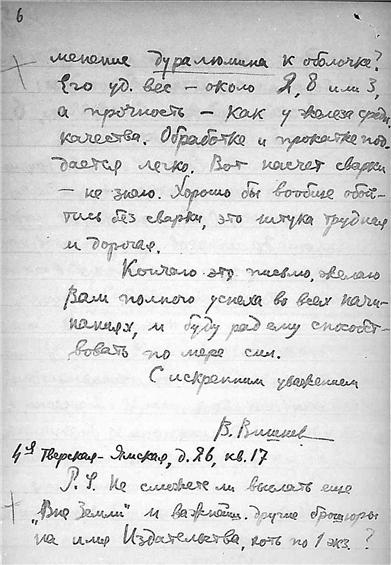 6
менение дуралюмина к оболочке?
Его уд. вес – около 2,8 или 3,
а прочность – как у железа средн.
качества. Обработке и прокатке под-
дается легко. Вот насчет сварки
– не знаю. Хорошо бы вообще обой-
тись без сварки, это штука трудная
и дорогая.
Кончаю это письмо, желаю
Вам полного успеха во всех начи-
наниях, и буду рад ему способст-
вовать по мере сил.
С искренним уважением
В. Вишнев
4ая Тверская-Ямская, д. 26, кв. 17
P. S. Не сможете ли выслать еще
„Вне Земли" и важнейш. другие брошюры
на имя Издательства, хоть по 1 экз.?